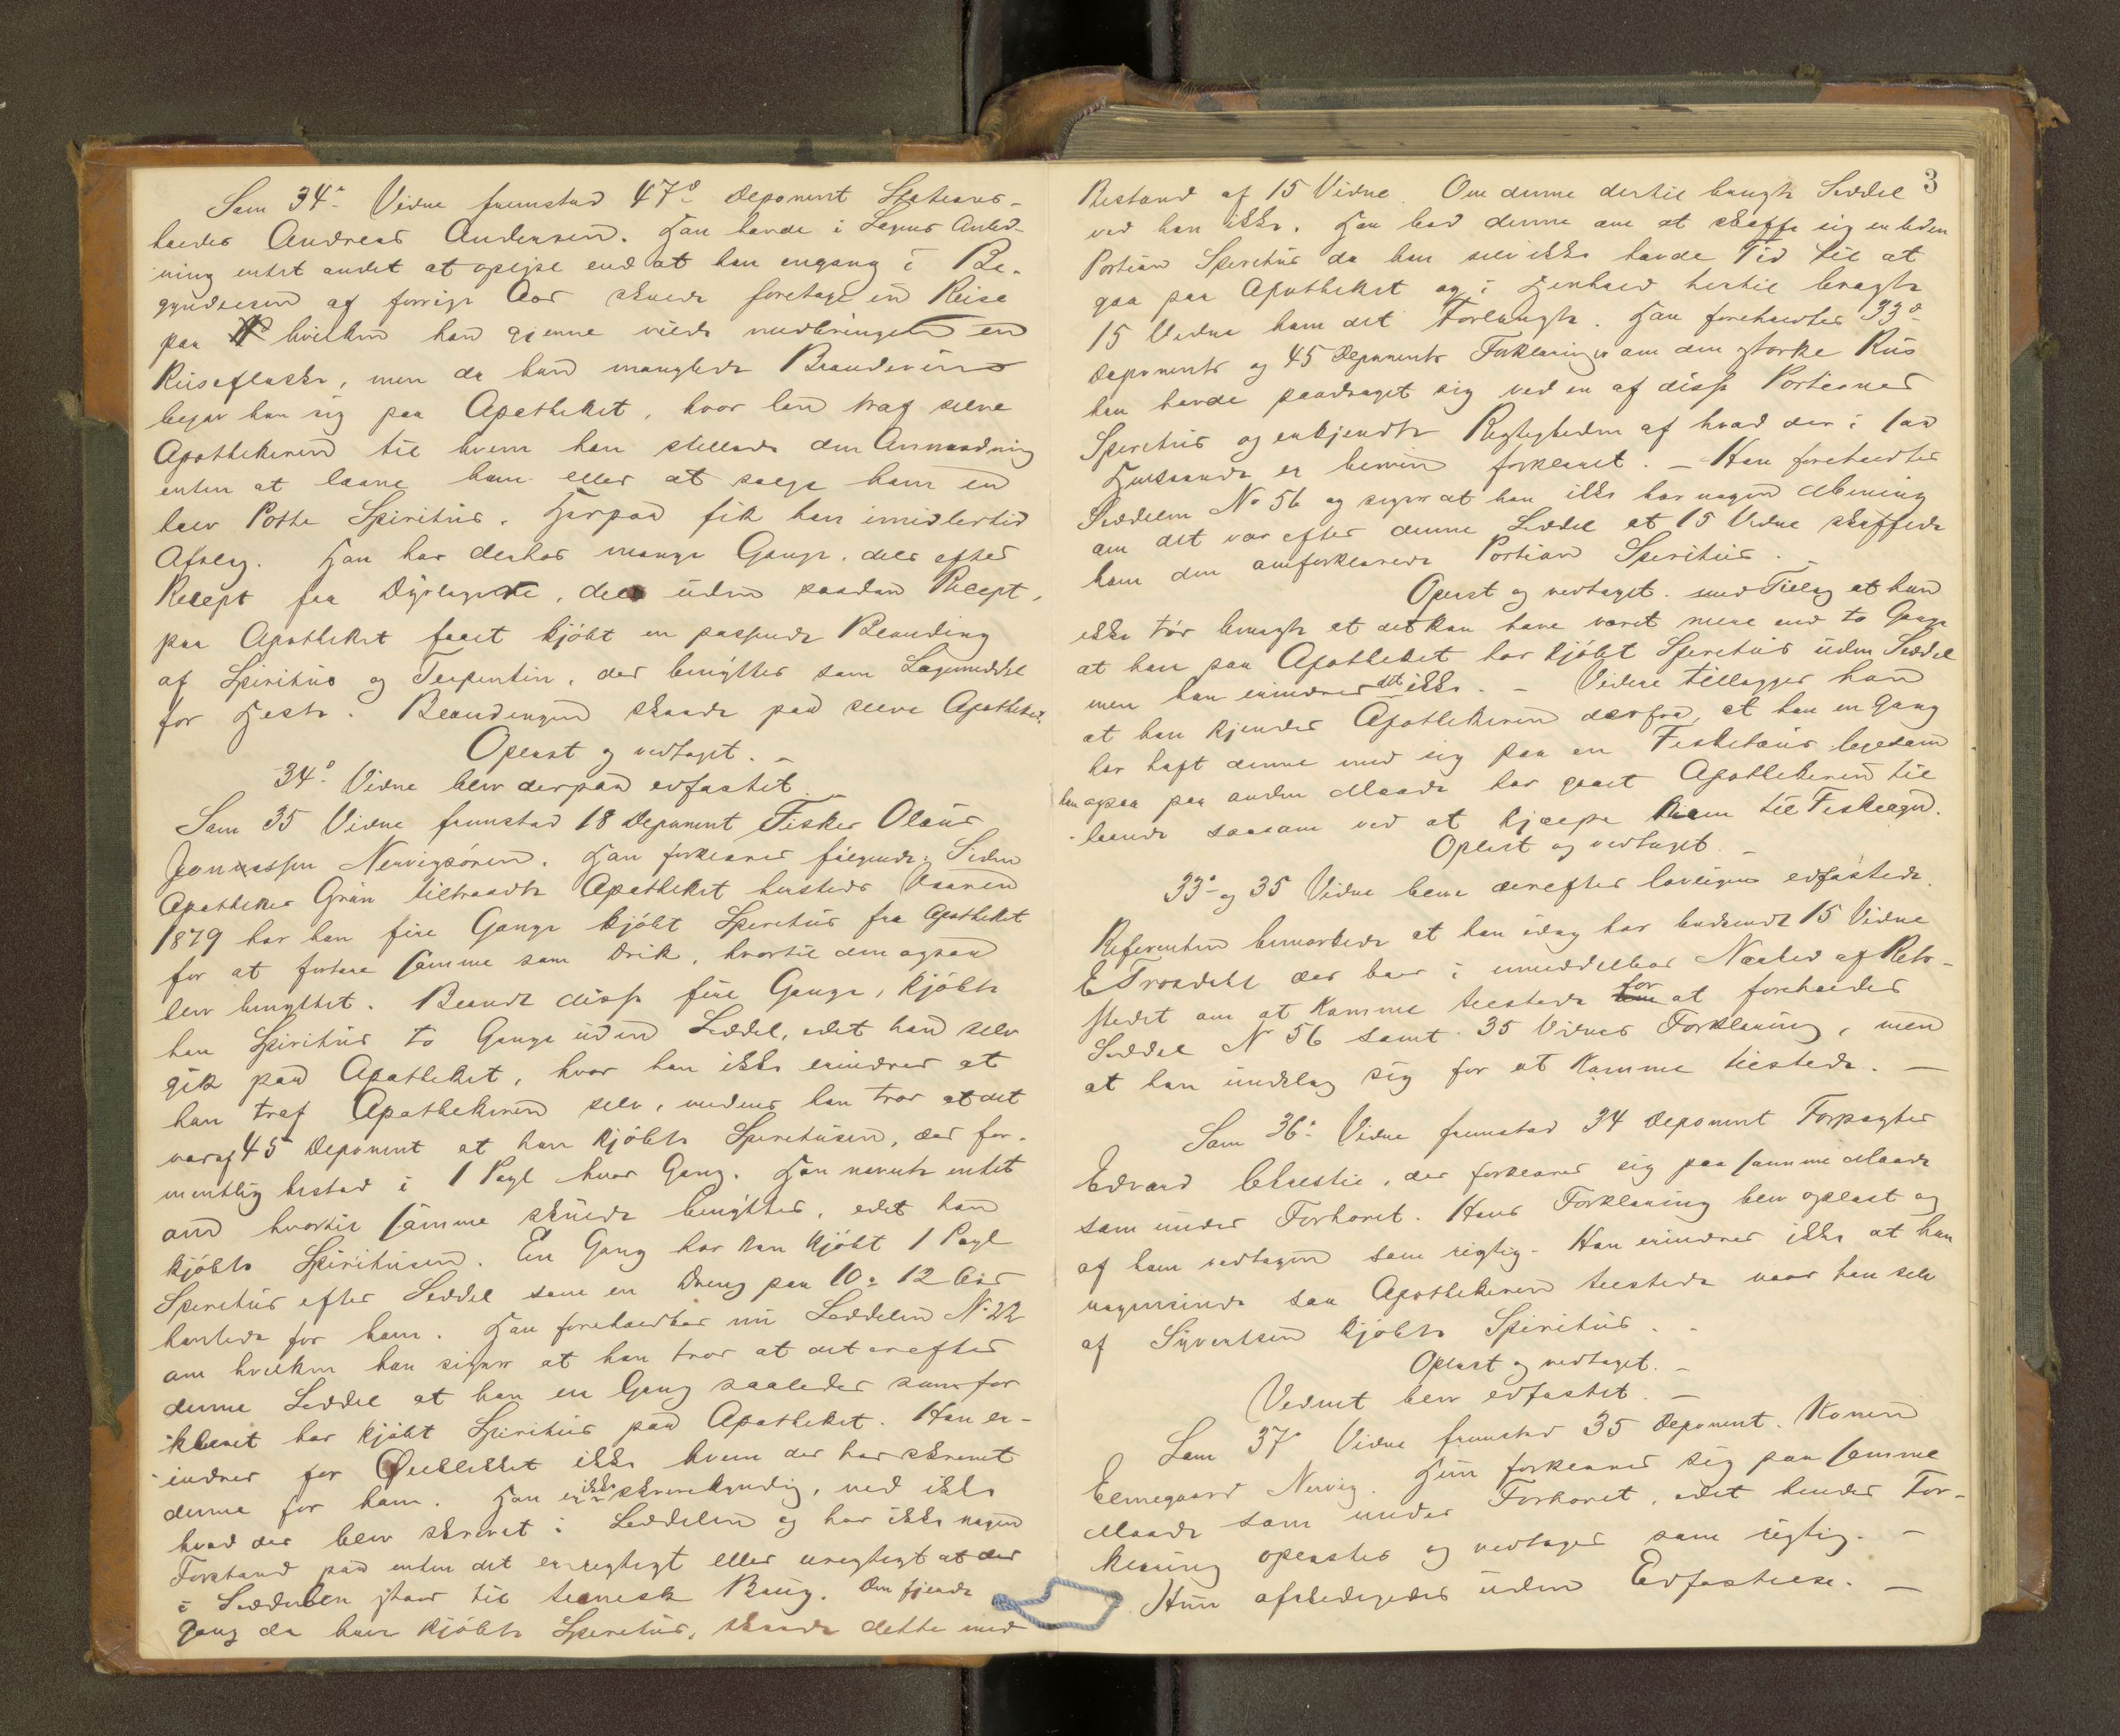 Som 34de Vidne fremstod 47de Deponent Stations-
holder Andreas Andersen. Han havde i Sagens Anled-
ning intet andet at oplyse end at han engang i Be-
gyndelsen af forrige Aar skulde foretage en Reise
paa hvilken han gjerne vilde medbringe en
Reiseflaske, men da han manglede Brændeviin
begav han sig paa Apotheket, hvor han traf selve
Apothekeren til hvem han stillede den Anmodning
enten at laane ham eller at sælge ham en
halv Potte Spiritus. Herpaa fik han imidlertid
Afslag. Han har derhos mange Gange, dels efter
Recept fra Dyrlægerne, dels uden saadan Recept,
paa Apotheket faaet kjöbt en passende Blanding
af Spiritus og Terpentin, der benyttes som Lægemiddel
for Heste. Blandingen skeede paa selve Apotheket.
Oplæst og vedtaget. –
34de Vidne blev derpaa edfæstet. –
Som 35 Vidne fremstod 18 Deponent Fisker Olaus
Jonassen Nervigsören. Han forklarer fölgende: Siden
Apotheker Grön tiltraadte Apotheket hersteds Vaaren
1879 har han fire Gange kjöbt Spiritus fra Apotheket
for at fortære samme som Drik, hvortil den ogsaa
blev benyttet. Blandt disse fire Gange, kjöbte
han Spiritus to Gange uden Seddel, idet han selv
gik paa Apotheket, hvor han ikke erindrer at
han traf Apothekeren selv, medens han tror at det
var af 45 Deponent at han kjöbte Spiritusen, der for-
mentlig bestod i 1 Pægl hver Gang. Han nævnte intet
om hvortil samme skulde benyttes, idet han
kjöbte Spiritusen. En Gang har han kjöbt 1 Pægl
Spiritus efter Seddel som en Dreng paa 10 a 12 Aar
hentede for ham. Han foreholdtes nu Seddelen No 22
om hvilken han siger at han tror at det er efter
denne Seddel at han en Gang saaledes som for
klaret har kjöbt Spiritus paa Apotheket. Han er-
indrer for Öieblikket ikke hvem der har skrevet
denne for ham. Han er ikke skrivekyndig, ved ikke
hvad der blev skrevet i Seddelen og har ikke nogen
Forstand paa enten det er rigtigt eller urigtigt at der
i Seddelen staar til teknisk Brug. Den fjerde
Gang da han kjöbte Spiritus, skeede dette med
3
Bistand af 15 Vidne. Om denne dertil brugte Seddel
ved han ikke. Han bad denne om at skaffe sig en liden
Portion Spiritus da han selv ikke havde Tid til at
gaa paa Apotheket og i Henhold hertil bragte
15 Vidne ham det Forlangte. Han foreholdtes 33de
Deponents og 45 Deponents Forklaringer om den stærke Rus
han havde paadraget sig ved en af disse Portioner
Spiritus og erkjendte Rigtigheden af hvad der i saa
Henseende er bleven forklaret. – Han foreholdtes
Seddelen No 56 og siger at han ikke har nogen Mening
om det var efter denne Seddel at 15 Vidne skaffede
ham den omforklarede Portion Spiritus.
Oplæst og vedtaget. med Tillæg at han
ikke tör benægte at det kan have været mere end to Gange
at han paa Apotheket har kjöbt Spiritus uden Seddel
men han erindrer det ikke. – Videre tillægger han
at han kjender Apothekeren derfra, at han en Gang
har haft denne med sig paa en Fisketour ligesom
han ogsaa paa anden Maade har gaaet Apothekeren til
haande saasom ved at hjælpe ham til Fiskeagn.
Oplæst og vedtaget. –
33de og 35 Vidne bleve derefter lovligen edfæstede.
Referenten bemærkede at han idag har budsendt 15 Vidne
E Trosdahl der bor i umiddelbar Nærhed af Rets-
stedet om at komme tilstede for at foreholdes
Seddel No 56 samt 35 Vidnes Forklaring, men
at han undslog sig for at komme tilstede. –
Som 36te Vidne fremstod 34 Deponent Forpagter
Edvard Christie, der forklarer sig paa samme Maade
som under Forhöret. Hans Forklaring blev oplæst og
af ham vedtagen som rigtig. Han erindrer ikke at han
nogensinde saa Apothekeren tilstede naar han selv
af Syvertsen kjöbte Spiritus. –
Oplæst og vedtaget. –
Vidnet blev edfæstet. –
Som 37te Vidne fremstod 35 Deponent. Konen
Ellingaard Nervig. Hun forklarer sig paa samme
Maade som under Forhöret, idet hendes For-
klaring oplæstes og vedtages som rigtig. –
Hun afskedigedes uden Edfæstelse. –